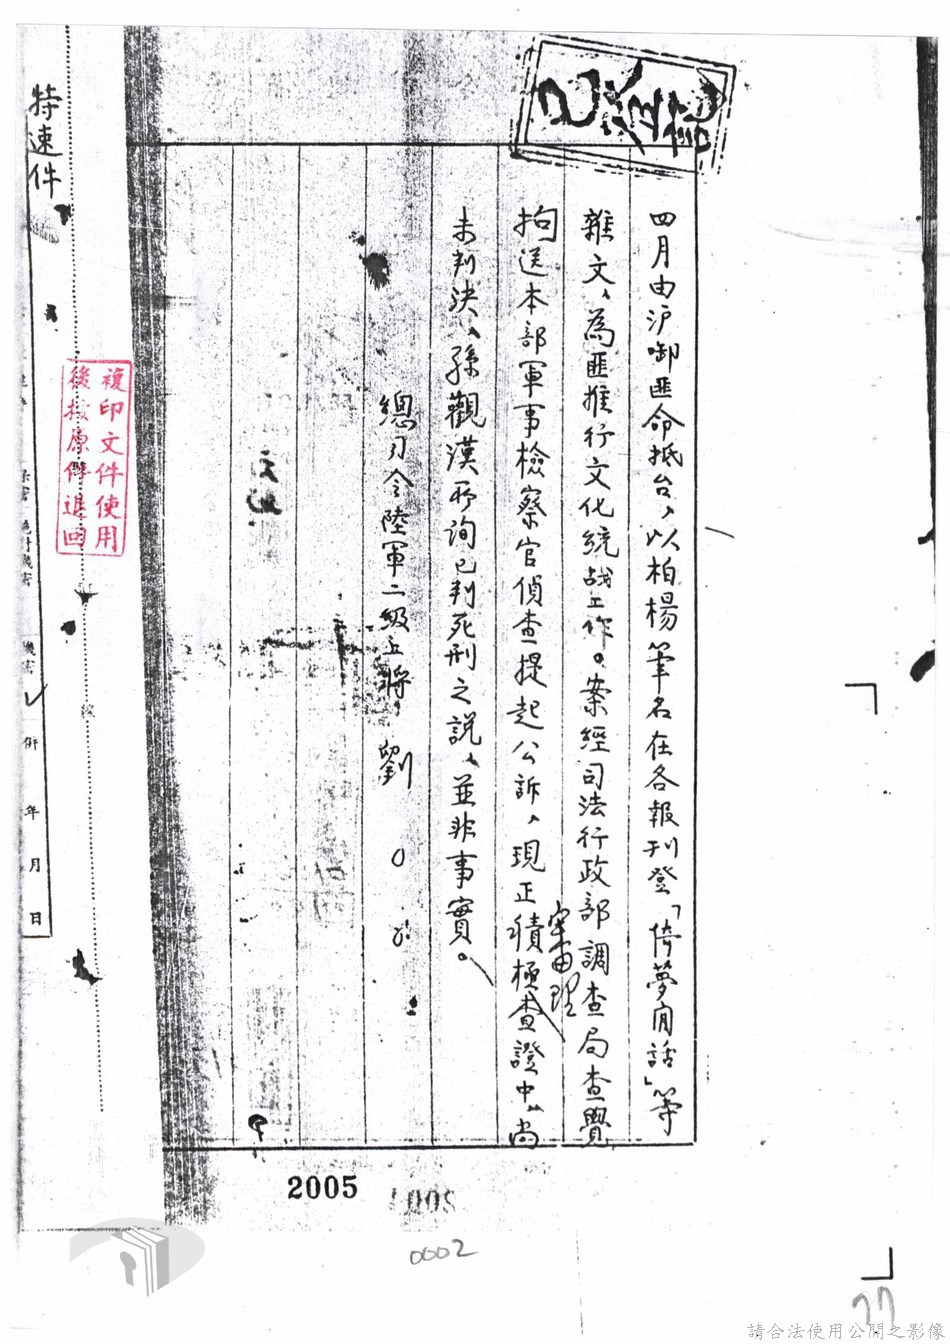 已登記
四月由沪啣匪命抵台，以柏楊筆名在各報刊登「倚夢閒話」等
雜文，為匪推行文化統战工作。案經司法行政部調查局查覺
拘送本部軍事檢察官偵查提起公訴，現正積極查證中，尚
審理
未判決，孫觀漢所詢已判死刑之說，並非事實。
總司令陸軍二級上將 劉 ○ ○
特速件
年 月 日
複印文件使用
後按原件退回
2005
0002
77
請合法使用公開之影像